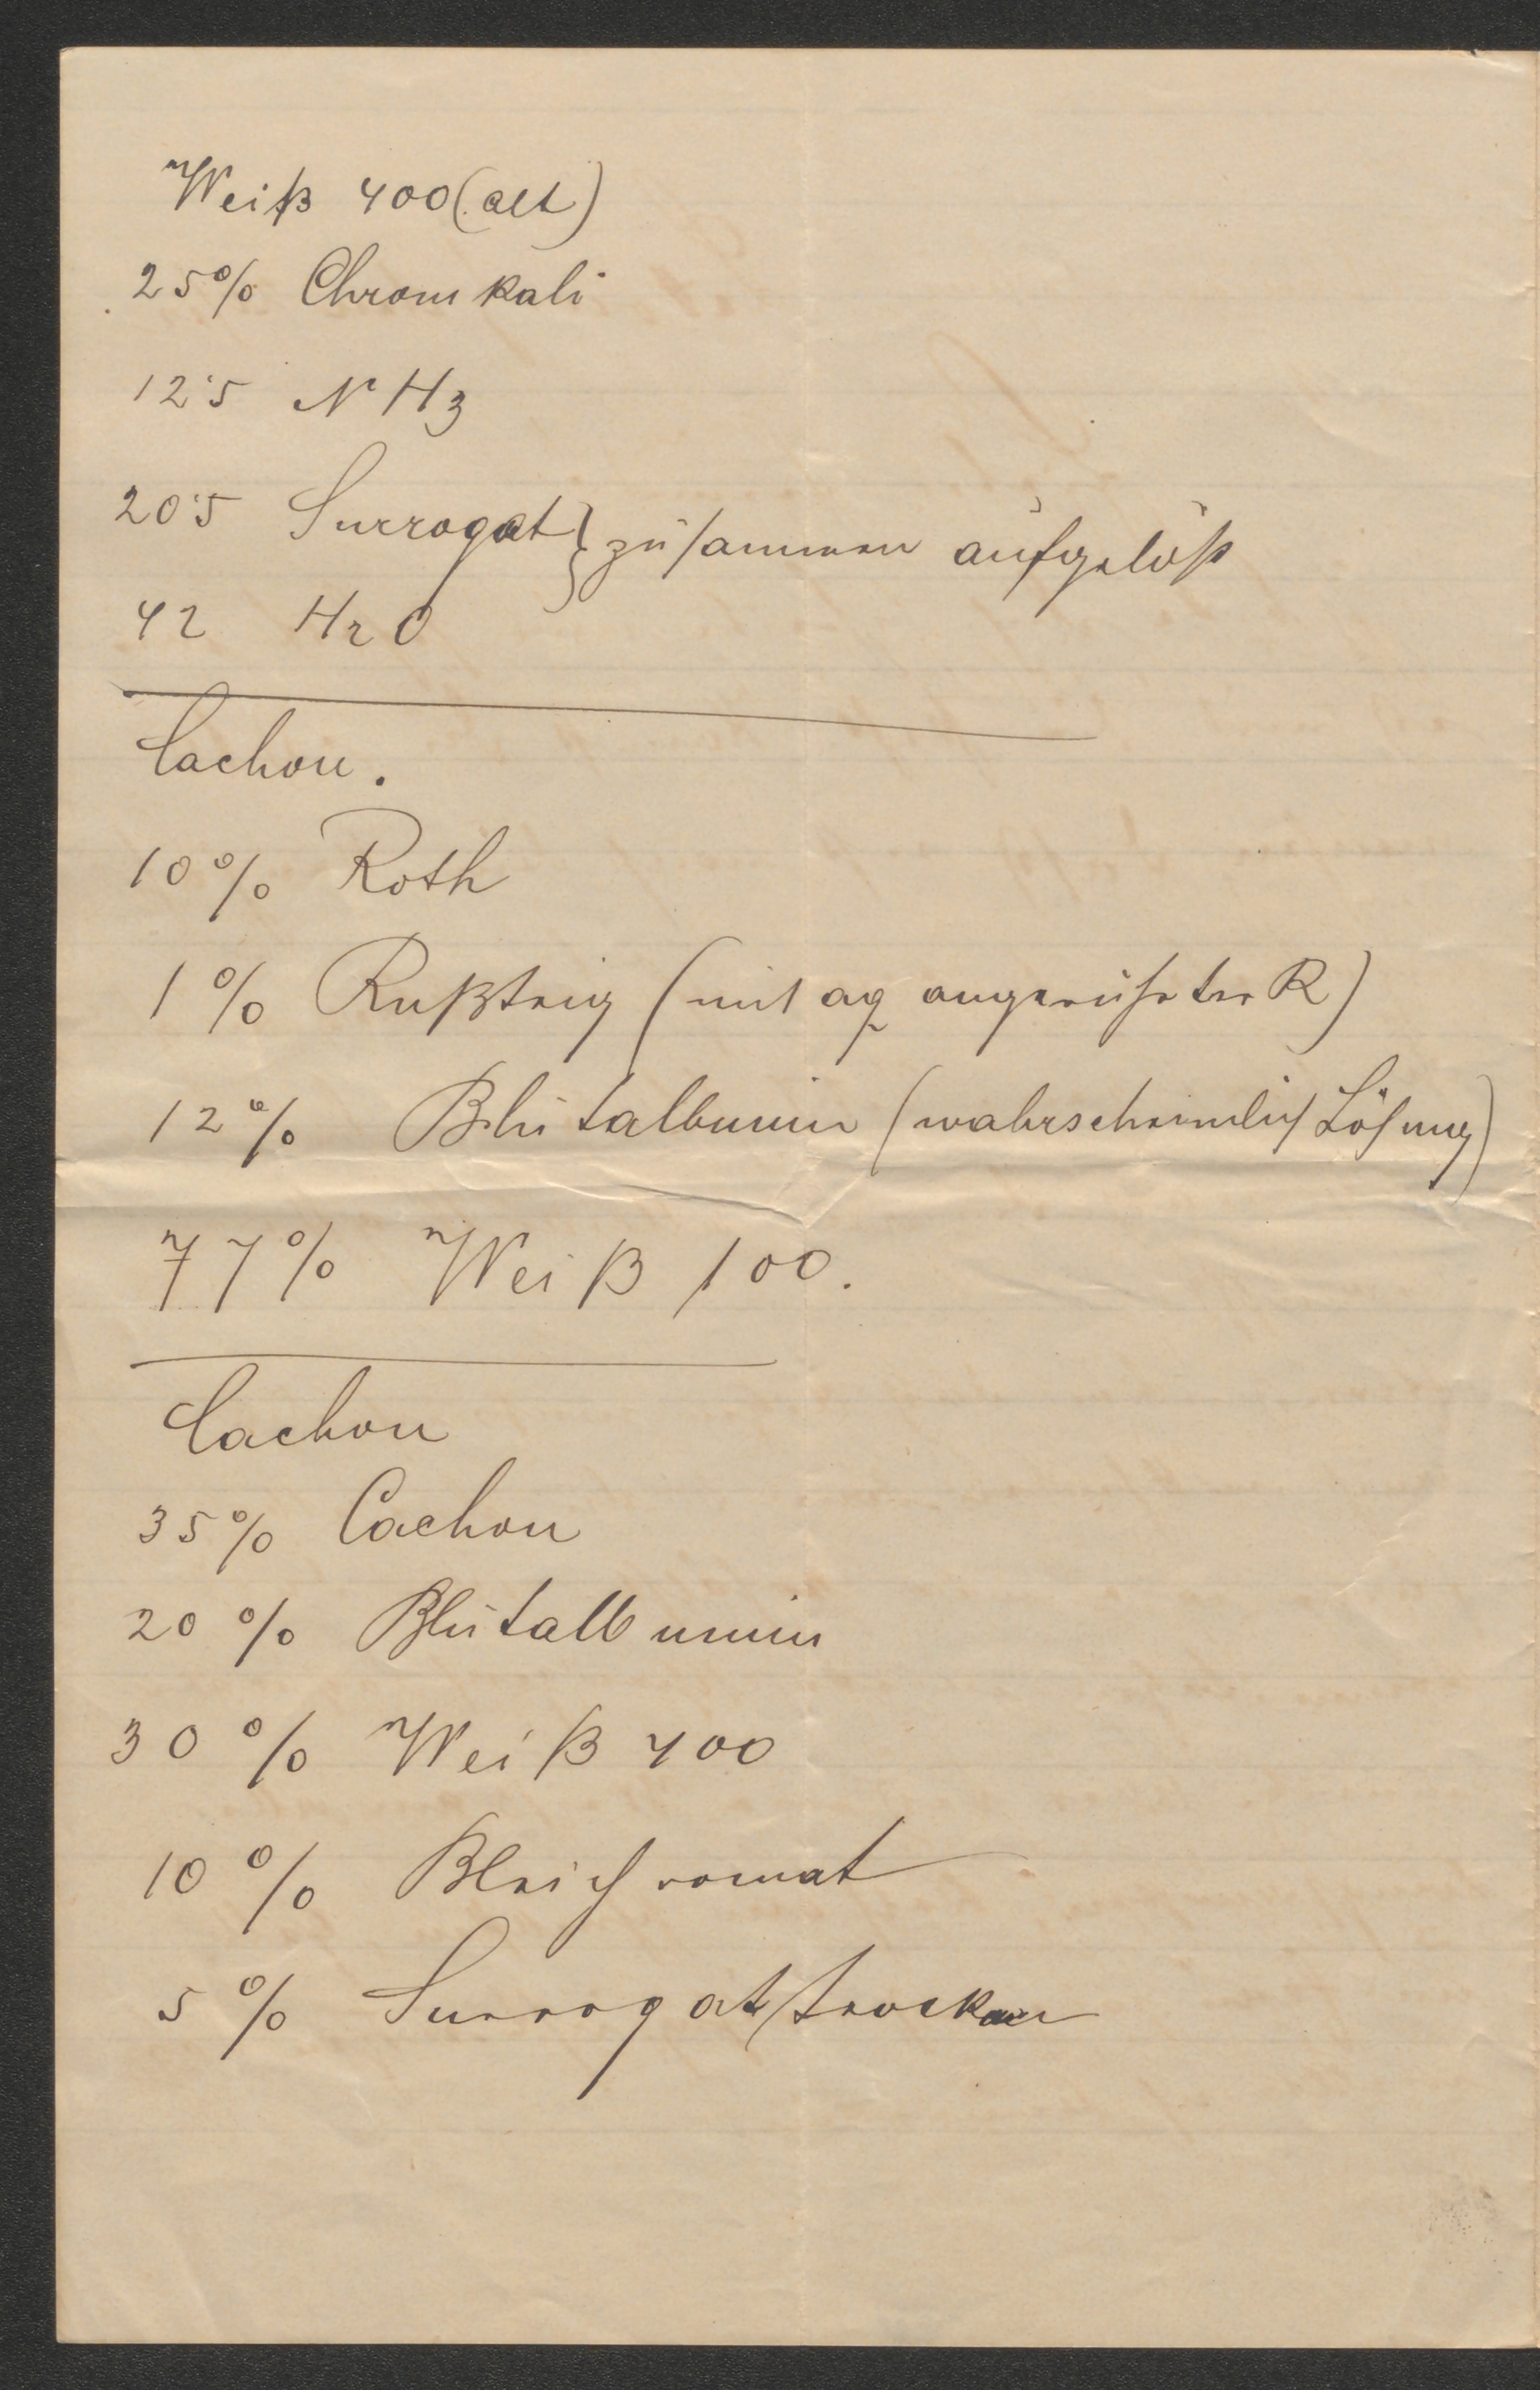 Weiß 400 (alt)
25% Chromkali
12·5 NH3
20·5 Surrogat } zusammen aufgelöst
42 H2O
Cachou.
10% Roth
1% Rußteig (mit aq angerührter R)
12% Blutalbumin (wahrscheinlich Lösung)
77% Weiß 100.
Cachou
35% Cachou
20% Blutalbumin
30% Weiß 400
10% Bleichromat
5% Surrogat trocken